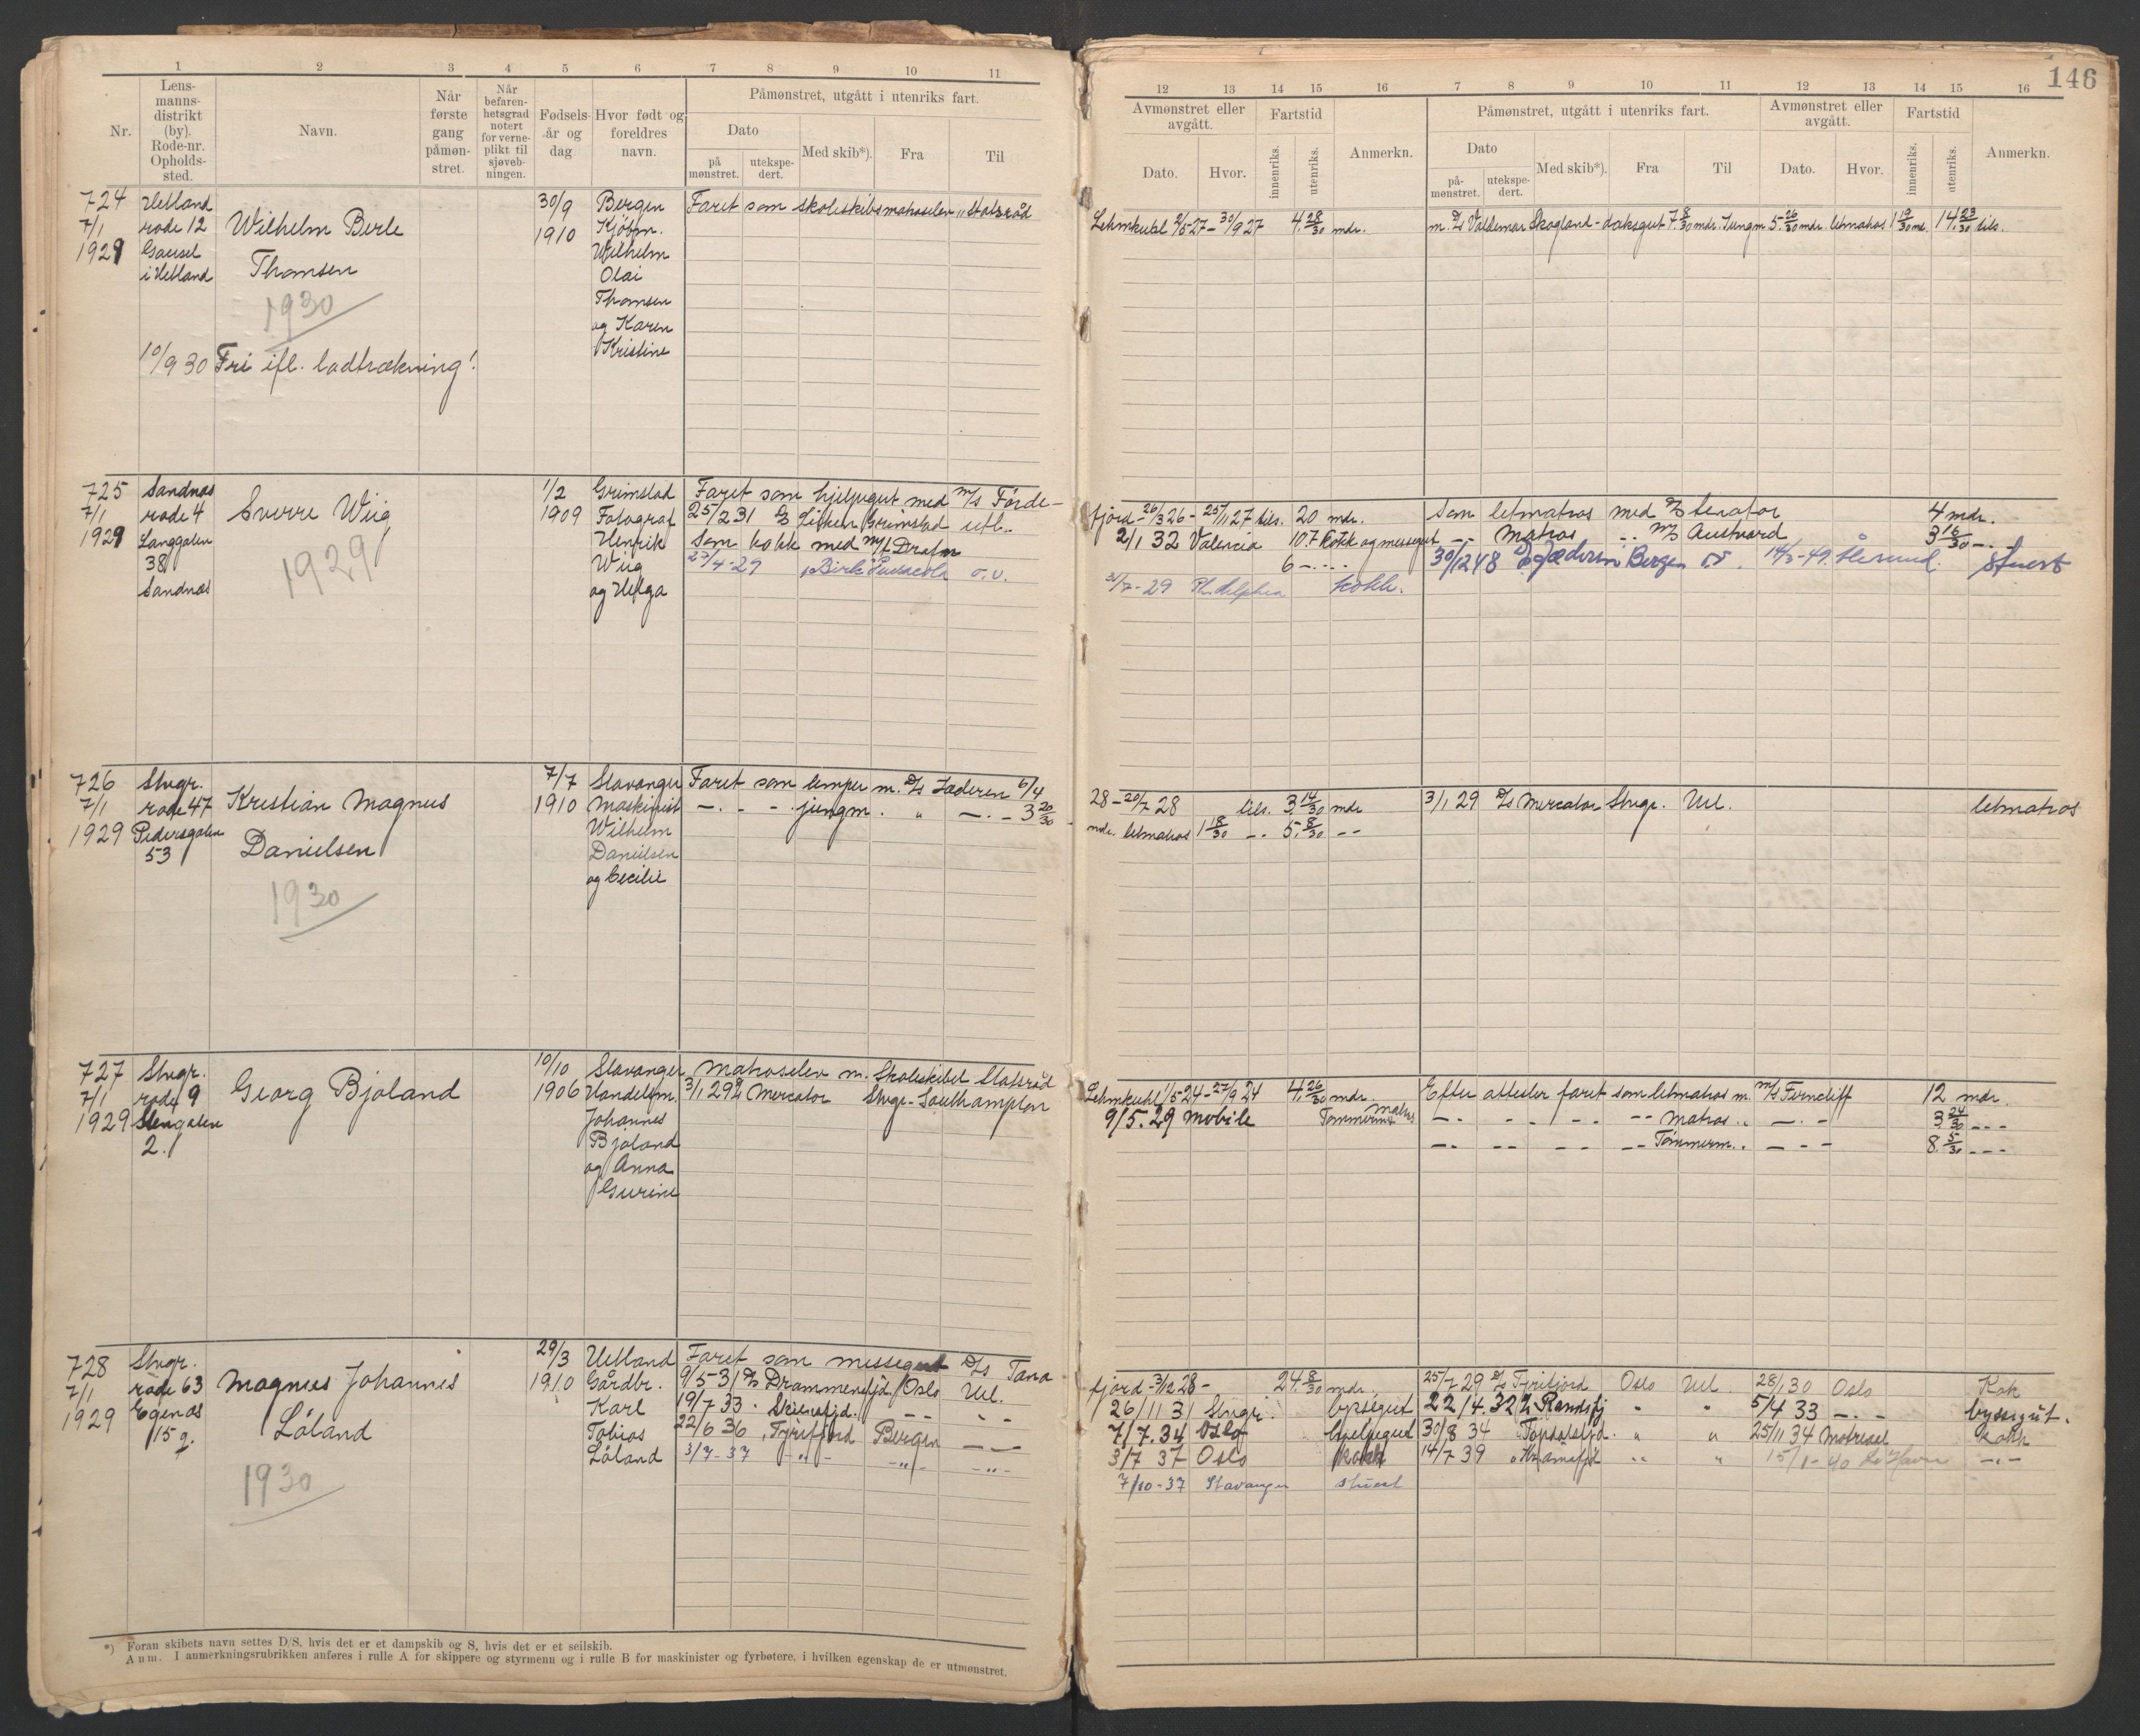 1 2 3 4 5 6 7 8 9 10 11
Nr.
Lensmannsdistrikt (by). Rode-nr. Opholdssted.
Navn.
Når første gang påmønstret.
Når befarenhetsgrad notert for verneplikt til sjøvebningen.
Fødselsår og dag
Hvor født og foreldres navn.
Påmønstret, utgått i utenriks fart.
Dato
på mønstret.
utekspedert.
Med skib*).
Fra
Til
724 Hetland 30/9 Bergen Faret som skoleskibsmatroselev "Statsråd
7/1 rode 12 Wilhelm Berle 1910 Kjöbm.
1929 Gausel Wilhelm
i Hetland Thomsen Olai
1930 Thomsen
og Karen
10/9 30 Fri ifl. lodtrækning! Kristine
725 Sandnes 1/2 Grimstad Faret som hjelpegut med m/s Förde-
7/1 rode 4 Sverre Wiig 1909 Fotograf 25/2 31 Grimstad utl.
1929 Langgaten Henrik Som kokk med m/t
38 1929 Wiig 27/4-29 o.v.
Sandnes og Helga
726 Stvgr. 7/7 Stavanger Faret som lemper m. D/s Jæderen 6/4
7/1 rode 47 Kristian Magnus 1910 Maskinist — . - - . jungm. „ — . – 3 20/30
1929 Pedersgaten Wilhelm
53 Danielsen Danielsen
1930 og Cecilie
727 Stvgr. 10/10 Stavanger Matroselev m. Skoleskibet Statsråd
7/1 rode 9 Georg Bjoland 1906 Handelsm. 3/1 29 D/s Mercator Stvgr. Southampton
1929 Stengaten Johannes
2. Bjoland
og Anna
Gurine
728 Stvgr. 29/3 Hetland Faret som messegut D/s Tana
7/1 rode 63 Magnus Johannes 1910 Gårdbr. 9/5 31 D/s Drammensfjd. Oslo Utl.
1929 Egenes Karl 19/7 33 . Skiensfjd. – – – –
15 g. Löland Tobias 22/6 36 „ Tyrifjord Bergen — —
1930 Löland 3/7-37 -„- -„- -„-
*) Foran skibets navn settes D/S, hvis det er et dampskib og S, hvis det er et seilskib.
Anm. I anmerkningsrubrikken anføres i rulle A for skippere og styrmenn og i rulle B for maskinister og fyrbøtere, i hvilken egenskap de er utmønstret.
146
12 13 14 15 16 7 8 9 10 11 12 13 14 15 16
Avmønstret eller avgått.
Dato. Hvor.
Fartstid
innenriks. utenriks.
Anmerkn.
Påmønstret, utgått i utenriks fart.
Dato
påmønstret. utekspedert.
Med skib*). Fra Til
Avmønstret eller avgått.
Dato. Hvor.
Fartstid
innenriks. utenriks.
Anmerkn.
Lehmkuhl 2/5-27 – 30/9 27 4 28/30 mdr. m. D/s Valdemar Skogland - dæksgut 7 8/30 mdr. Jungm. 5 26/30 mdr. letmatros 1 19/30 md. 14 23/30 tils.
fjord - 26/3 26 - 25/1 27 tils. 20 mdr. Som letmatros med D/s 4 mdr.
2/1 32 Valencia 10.7 Kokk og messegut -- Matros -- m/s Austvard 3 16/30 – . –
6 – . – 30/12 48 D/s Jæderen Bergen 14/3-49. Ålesund. Stuert
31/7-29 kokk.
28 – 20/7 28 tils. 3 14/30 mdr 3/1 29 D/s Mercator Stvgr. Utl. letmatros
mdr. letmatros 1 18/30 -- 5 8/30 --
Lehmkuhl 1/5-24 - 27/9 24 4 26/30 mdr. Efter attester faret som letmatros m. m/s Ferncliff 12 mdr.
9/5. 29 Mobile Tömmerm. matros — . - - . – . -- Matros „ — . – 3 24/30 – – –
— . -- – – -- Tömmerm. . — - – 8 5/30 – – –
fjord - 3/12 28 – 24 8/30 mdr. 25/7 29 D/s Tyrifjord Oslo Utl. 28/1 30 Oslo Kok
26/11 31 Stvgr. byssegut 22/4. 32 D/s Randsfj " " 5/4 33 — . – byssegut.
7/7. 34 Oslo hjelpegut 30/8 34 „ Topdalsfjd. " " 25/11 34 kokk
3/7 37 Oslo kokk 14/7 39 " " 15/1-40 — . –
7/10-37 Stavanger stuert